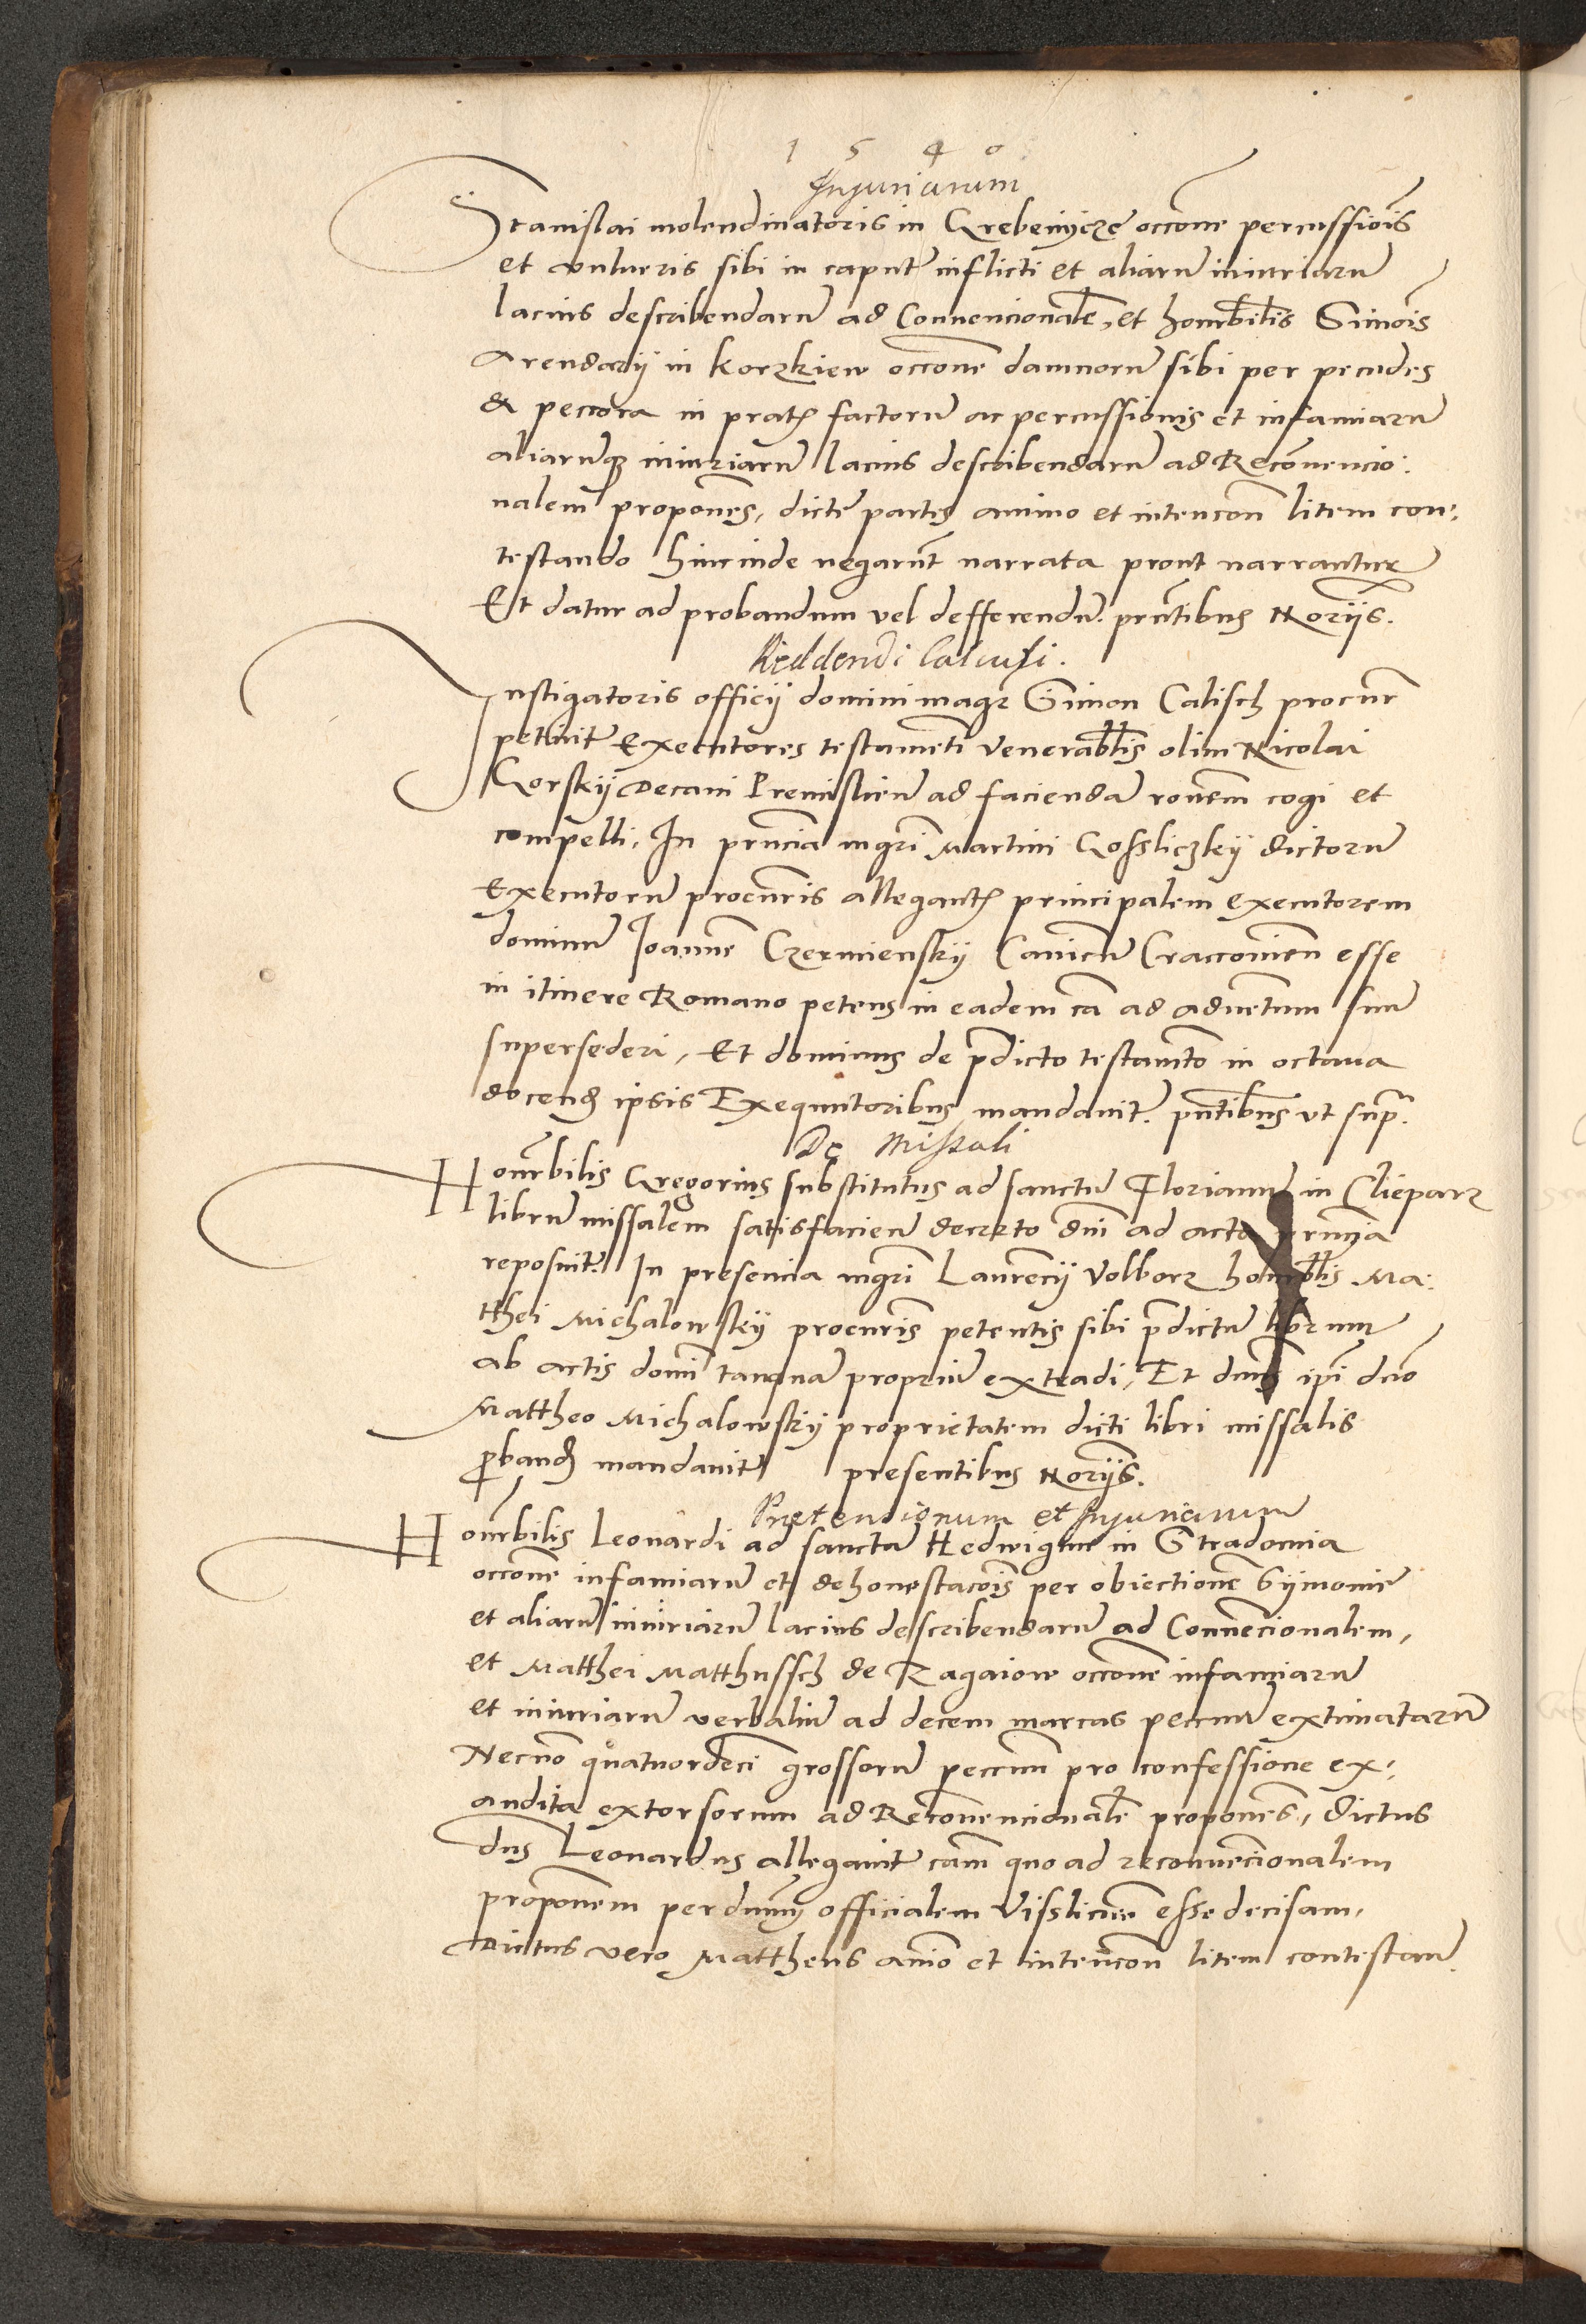 1540
Injuriarum
Stanislai molendinatoris in Grebenycze occōne percussiōis
et vulneris sibi in caput inflicti et aliarū iniuriarū
lacius describendarū ad Conuencionalē, et honorabilis Simōis
Arendarij in Korzkiew occōne damnorū sibi per pecudes
& peccora in prat factorū ac percussionis et infamiarū
aliarūq iniuriarū lacius describendarū ad Recōuencio:
nalem propōnes, dicte partes animo et intencōn litem con:
testando hincinde negarūt narrata prout narrantur
Et datur ad probandum vel defferendū. prn̄tibus Norijs.
Reddendi Calculi.
Instigatoris officij domini magr Simon Calisch procur
petiuit Executores testamēti venerabilis olim Nicolai
Gorskij Decani Premislien̄ ad faciendā ronem cogi et
compelli. In prn̄cia mgri Martini Gossliczkij dictorū
Executorū procuris allegant principalem executorem
dominū Joannē Czermienskij Canicū Craccouien̄ esse
in itinere Romano petens in eadem cā ad aduentum suū
supersederi, Et dominus de p̄dicto testamēto in octaua
docend ipsis Exequutoribus mandauit. pn̄tibus vt supra.
De Missali
Honorbilis Gregorius substitutus ad sanctū Florianū in Clieparz
librū missalem satisfaciendo decreto dn̄i ad acta prn̄cia
reposuit. In presencia mgri Laurēcij Volborz honorablis Ma:
tthei Michalowskij procuris petentis sibi p̄dictū librum
ab actis domī tanquā propriū extradi, Et dnus ipī dno
Mattheo Michalowskij proprietatem dicti libri missalis
proband mandauit presentibus Norijs.
Pretensionum et Injuriarum
Honorbilis Leonardi ad sanctā Hedwigim in Stradomia
occōne infamiarū et dehonestacōis per obiectionē Symonie
et aliarū iniuriarū lacius describendarū ad Conuēcionalem,
et Matthei Matthussch de Ragaiow occōne infamiarū
et iniuriarū verbaliū ad decem marcas peccuniē extimatarū
Necnō quatuordeci grossorū peccuni pro confessione ex:
audita extorsorum ad Reconuencionalē propōnes, dictus
dns Leonardus allegauit cam quo ad reconuēcionalem
propōnem per dnum officialem Visslicien̄ esse decisam,
Dictus vero Mattheus animo et intencōn litem contestan̄